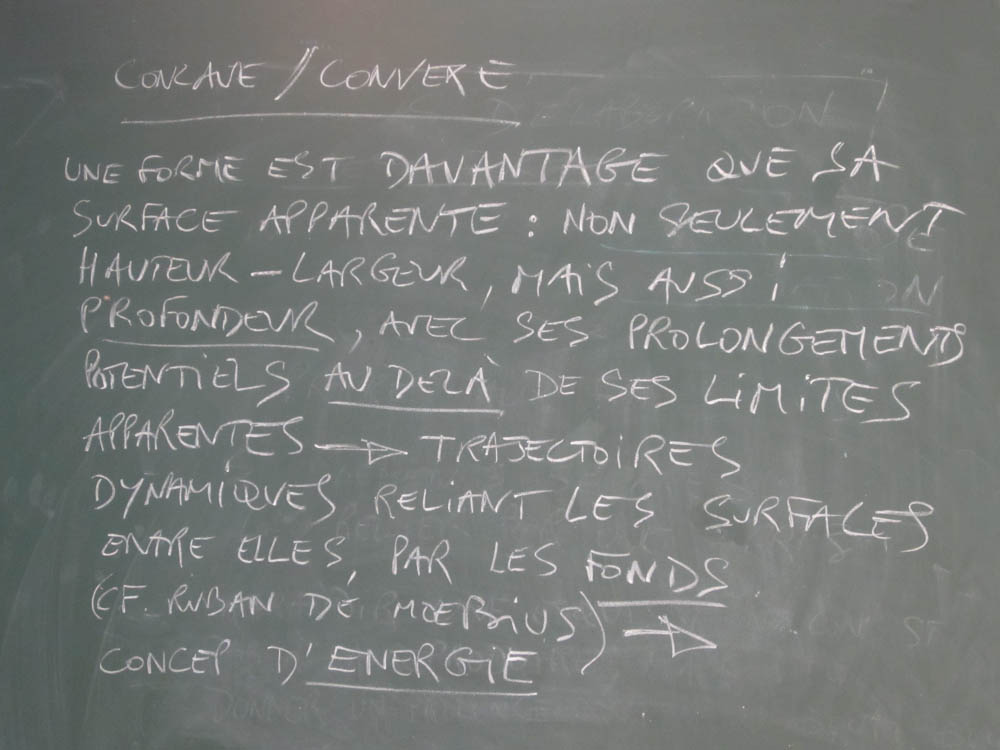 CONCAVE / CONVEXE
UNE FORME EST DAVANTAGE QUE SA
SURFACE APPARENTE : NON SEULEMENT
HAUTEUR - LARGEUR, MAIS AUSSI
PROFONDEUR, AVEC SES PROLONGEMENTS
POTENTIELS AU DELÀ DE SES LIMITES
APPARENTES → TRAJECTOIRES
DYNAMIQUES RELIANT LES SURFACES
ENTRE ELLES, PAR LES FONDS
(CF. RUBAN DE MOEBIUS) →
CONCEP D'ENERGIE